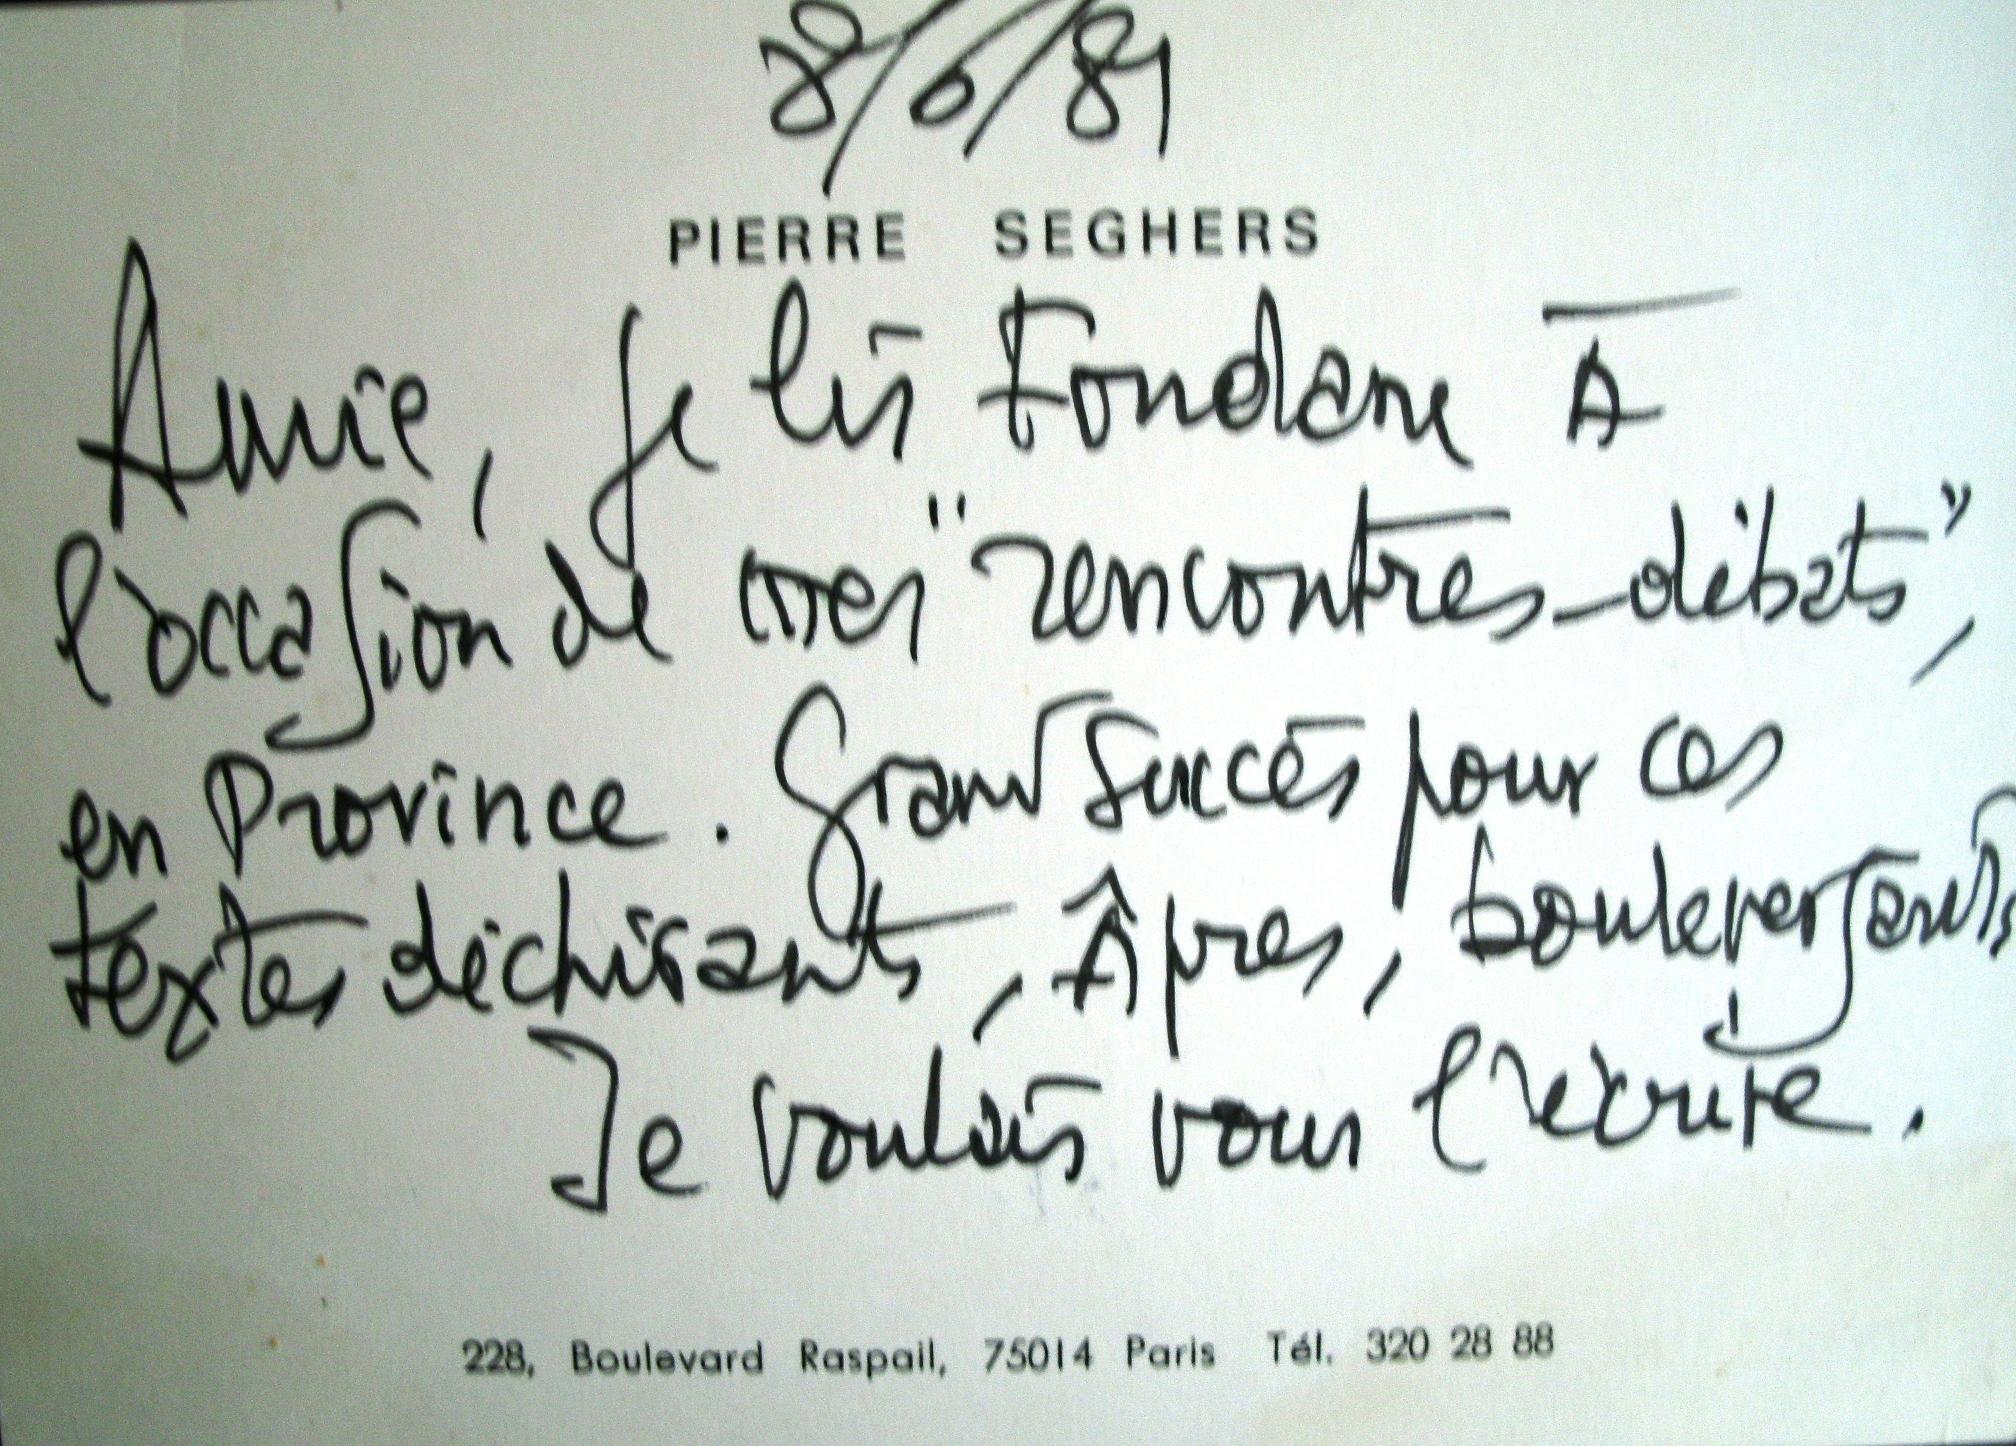 8/6/81
PIERRE SEGHERS
Amie, je lis Fondane à
l'occasion de mes "rencontres-débats",
en Province. Grand succès pour ces
textes déchirants, âpres, bouleversants
Je voulais vous l'écrire.
228, Boulevard Raspail, 75014 Paris Tél. 320 28 88